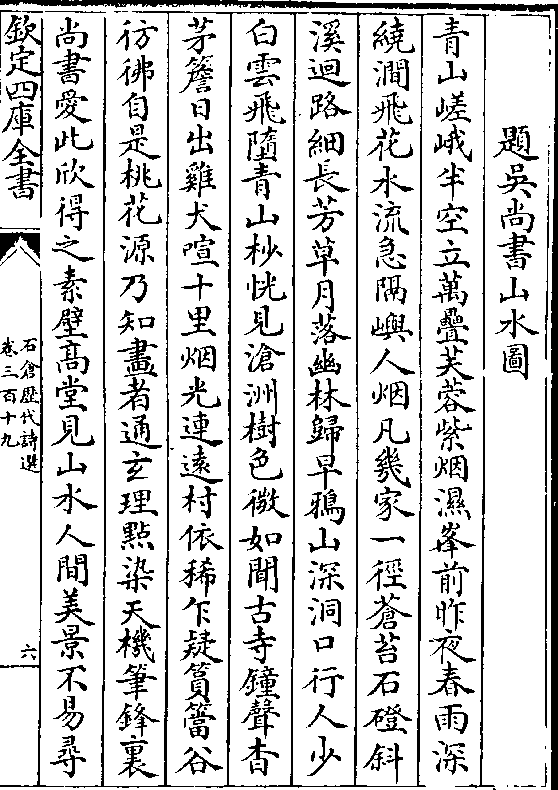 題吳尚書山水圖
青山嵯峨半空立萬疊芙蓉紫烟濕峯前昨夜春雨深
繞澗飛花水流急隔嶼人烟凡幾家一徑蒼苔石磴斜
溪迴路細長芳草月落幽林歸早鴉山深洞口行人少
白雲飛墮青山杪恍見滄洲樹色微如聞古寺鐘聲杳
茅簷日出雞犬喧十里烟光連遠村依稀乍疑篔簹谷
彷彿自是桃花源乃知畫者通玄理點染天機筆鋒裏
尚書愛此欣得之素壁髙堂見山水人間美景不易尋
欽定四庫全書
石倉歷代詩選
卷三百十九
六